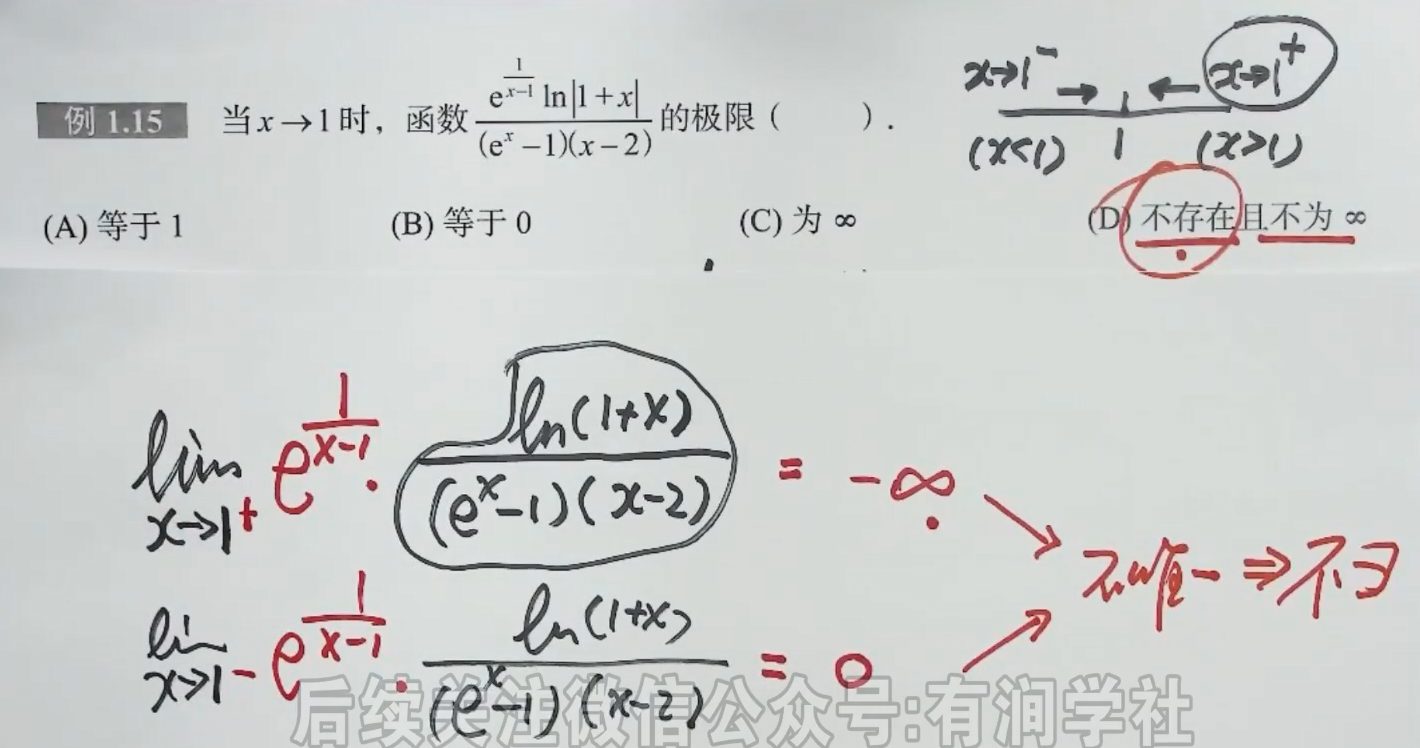 例 1.15 当 x→1 时，函数 \frac{e^{\frac{1}{x-1}} ln|1+x|}{(e^x-1)(x-2)} 的极限（ ）.
x→1^- → ← x→1^+
(x<1) 1 (x>1)
(A) 等于 1 (B) 等于 0 (C) 为 ∞ (D) 不存在且不为 ∞
lim_{x→1^+} e^{\frac{1}{x-1}} · \frac{ln(1+x)}{(e^x-1)(x-2)} = -∞
不唯一 ⇒ 不∃
lim_{x→1^-} e^{\frac{1}{x-1}} · \frac{ln(1+x)}{(e^x-1)(x-2)} = 0
后续关注微信公众号:有润学社